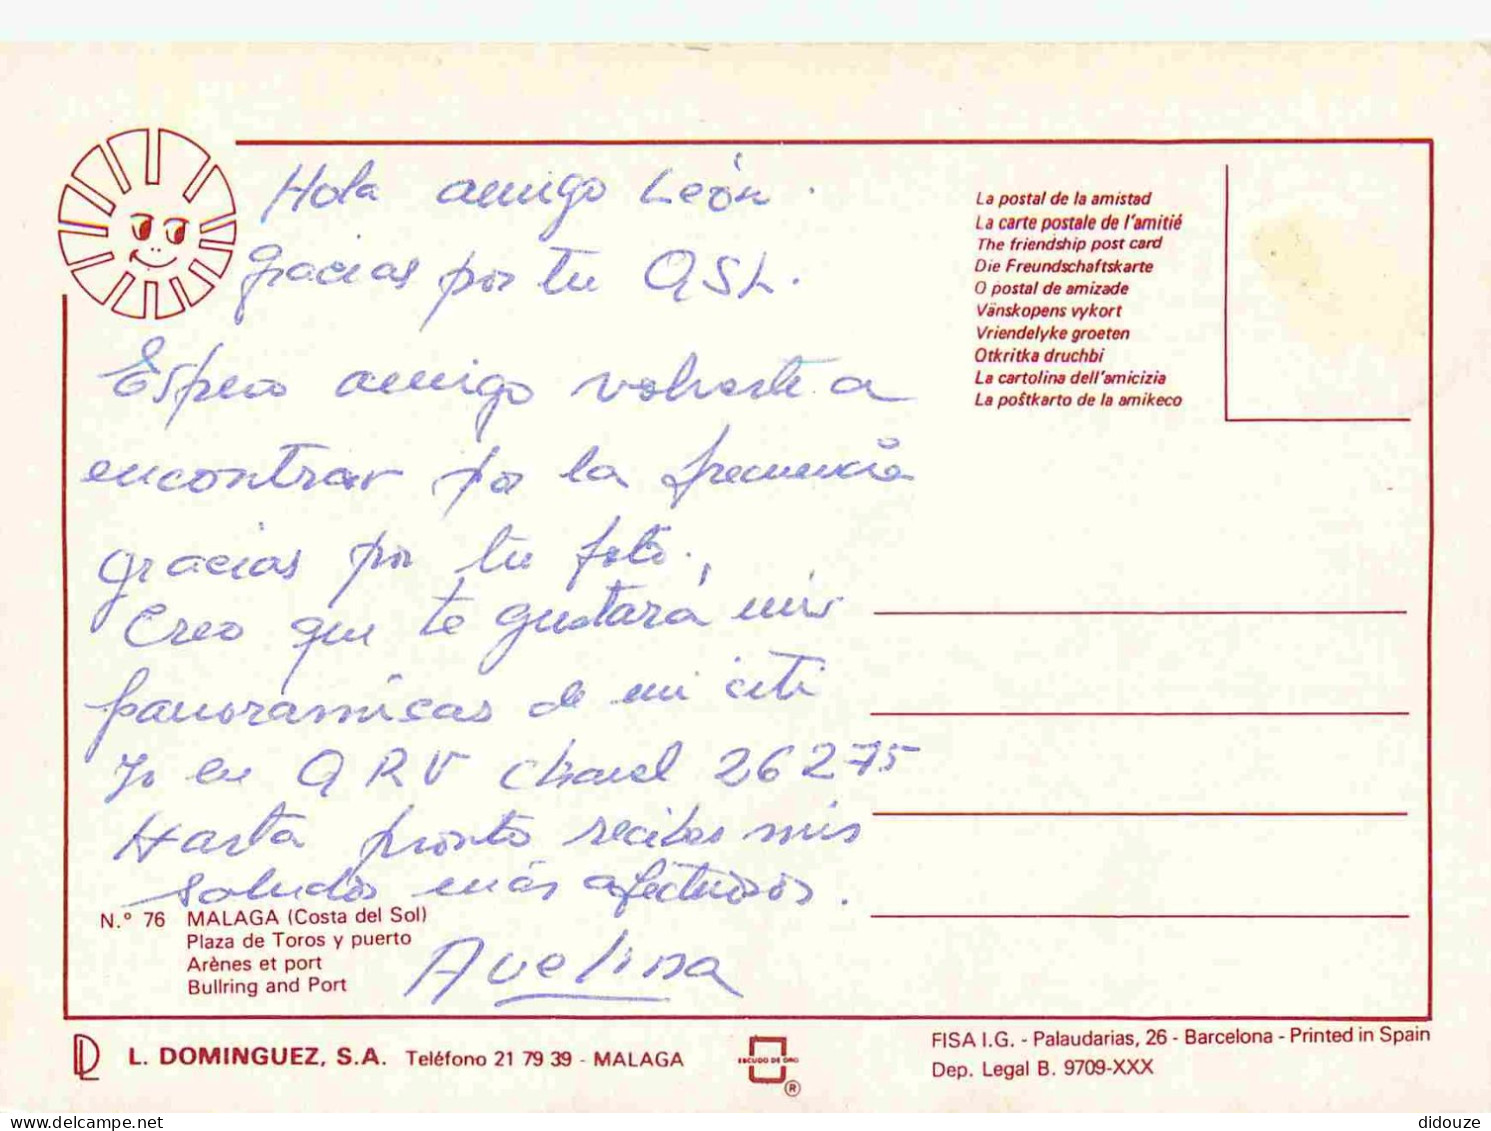 Hola amigo León.
gracias por tu QSL.
Espero amigo volverte a
encontrar por la frecuencia
gracias por tu foto.
Creo que te gustará mis
panorámicas de mi citi
Yo en QRV chanel 26275
Hasta pronto recibes mis
saludos más afectuosos.
Avelina
La postal de la amistad
La carte postale de l'amitié
The friendship post card
Die Freundschaftskarte
O postal de amizade
Vänskopens vykort
Vriendelyke groeten
Otkritka druchbi
La cartolina dell'amicizia
La poŝtkarto de la amikeco
N.° 76 MALAGA (Costa del Sol)
Plaza de Toros y puerto
Arènes et port
Bullring and Port
L. DOMINGUEZ, S.A. Teléfono 21 79 39 - MALAGA
ESCUDO DE ORO
®
FISA I.G. - Palaudarias, 26 - Barcelona - Printed in Spain
Dep. Legal B. 9709-XXX
didouze